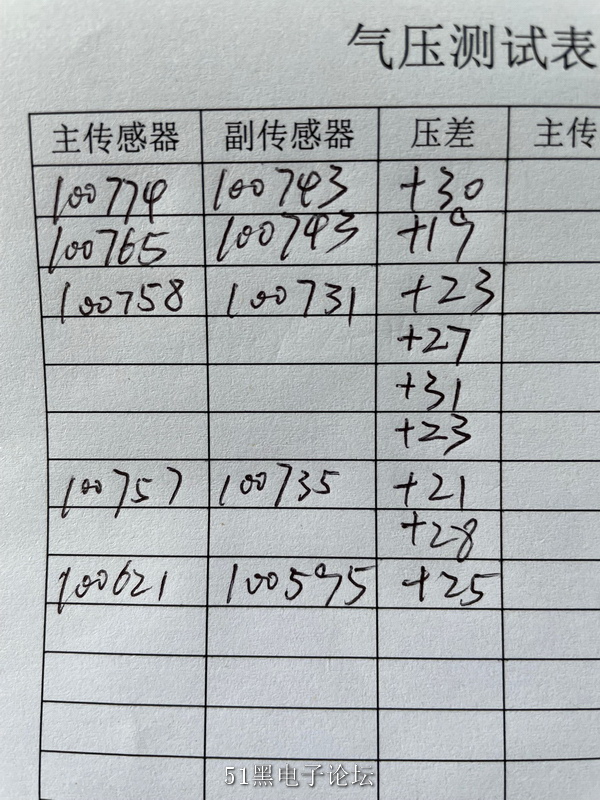 气压测试表
主传感器 副传感器 压差 主传
100774 100743 +30
100765 100743 +19
100758 100731 +23
+27
+31
+23
100757 100735 +21
+28
100621 100595 +25
51黑电子论坛